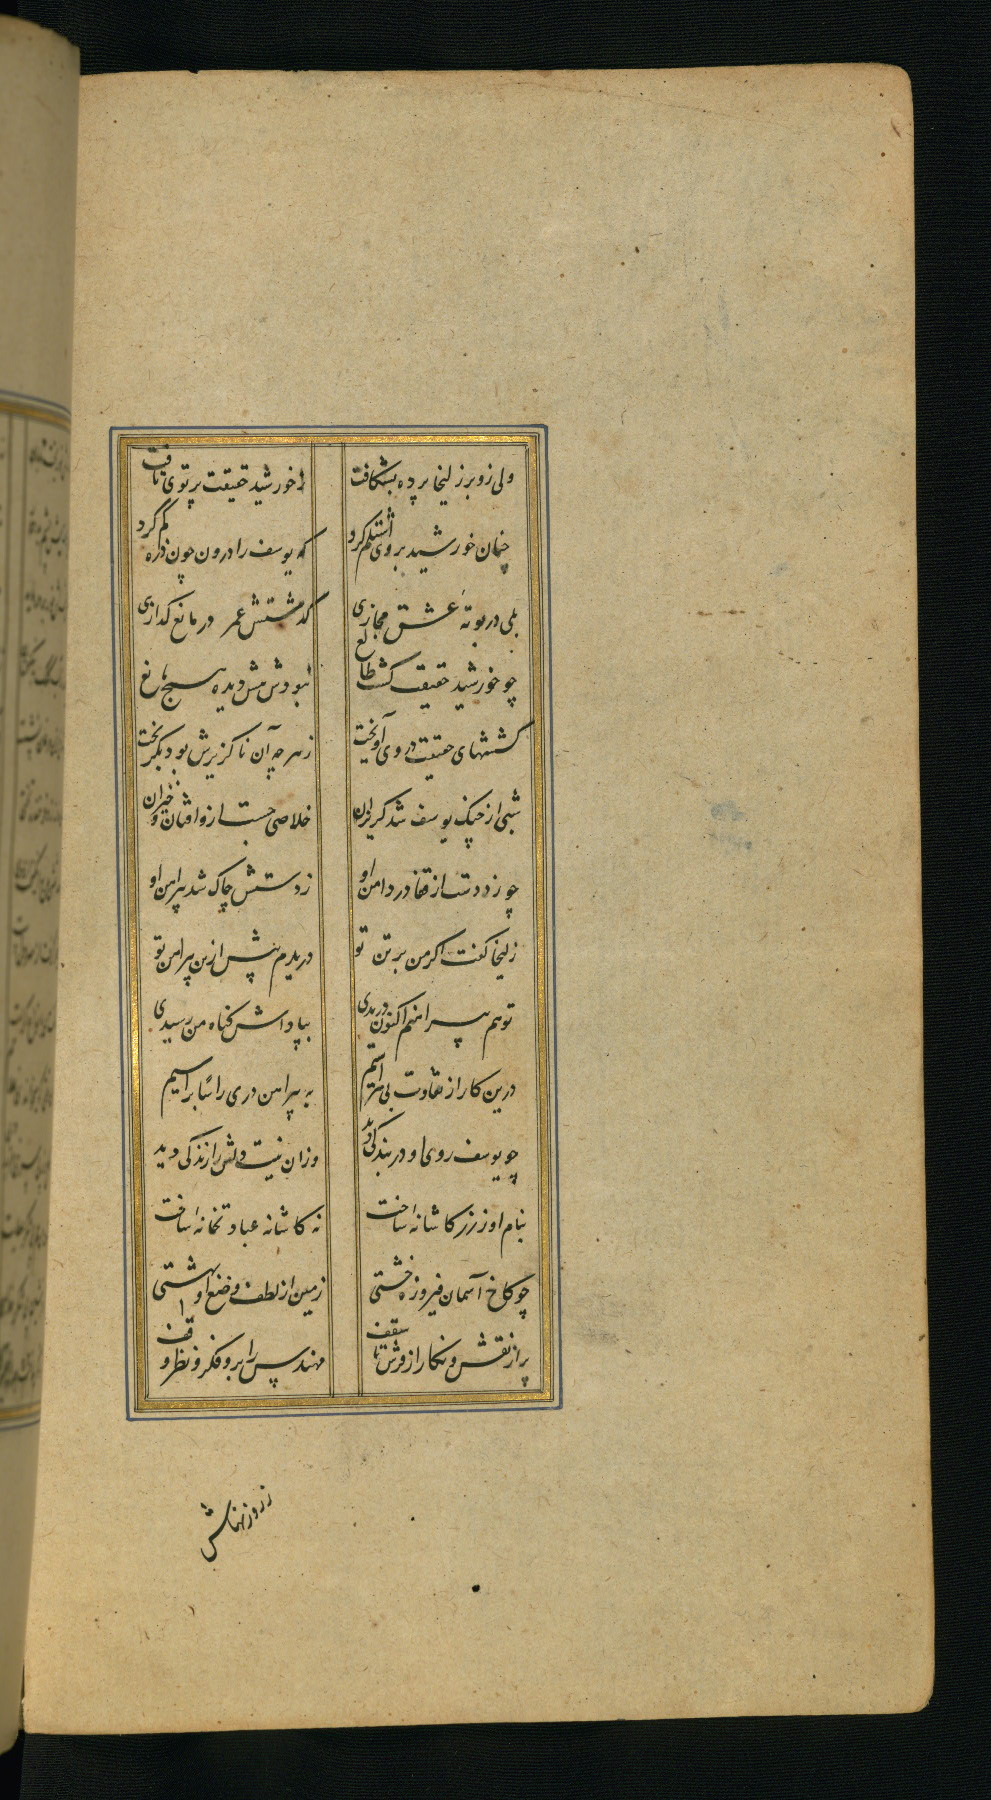 ولی زو بر زلیخا پرده بشکافت ز خورشید حقیقت پرتوی تافت
چنان خورشید بروی اشتلم کرد که یوسف را درون چون ذره گم کرد
بلی در بوتهٔ عشق مجازی گذشتش عمر در مانع گدازی
چو خورشید حقیقت گشت طالع نبودش پیش دیده هیچ مانع
کششهای حقیقت در وی آویخت ز هر چه آن ناگزیرش بود بگریخت
شبی از چنگ یوسف شد گریزان خلاصی جست ازو افتان و خیزان
چو زد دست از قفا در دامن او ز دستش چاک شد پیراهن او
زلیخا گفت اگر من بر تن تو دریدم پیش ازین پیراهن تو
تو هم پیراهنم اکنون دریدی بپاداش گناه من رسیدی
درین کار از تفاوت بی هراسیم به پیراهن دری راسا براسیم
چو یوسف روی او در بندگی دید وزان نیت دلش را زندگی دید
بنام او ز زر کاشانه ساخت نه کاشانه عبادتخانه ساخت
چو کاخ آسمان فیروزه خشتی زمین از لطف وضع او بهشتی
پر از نقش و نگار از فرش تا سقف مهندس را برو فکر و نظر وقف
ز روزنهاش